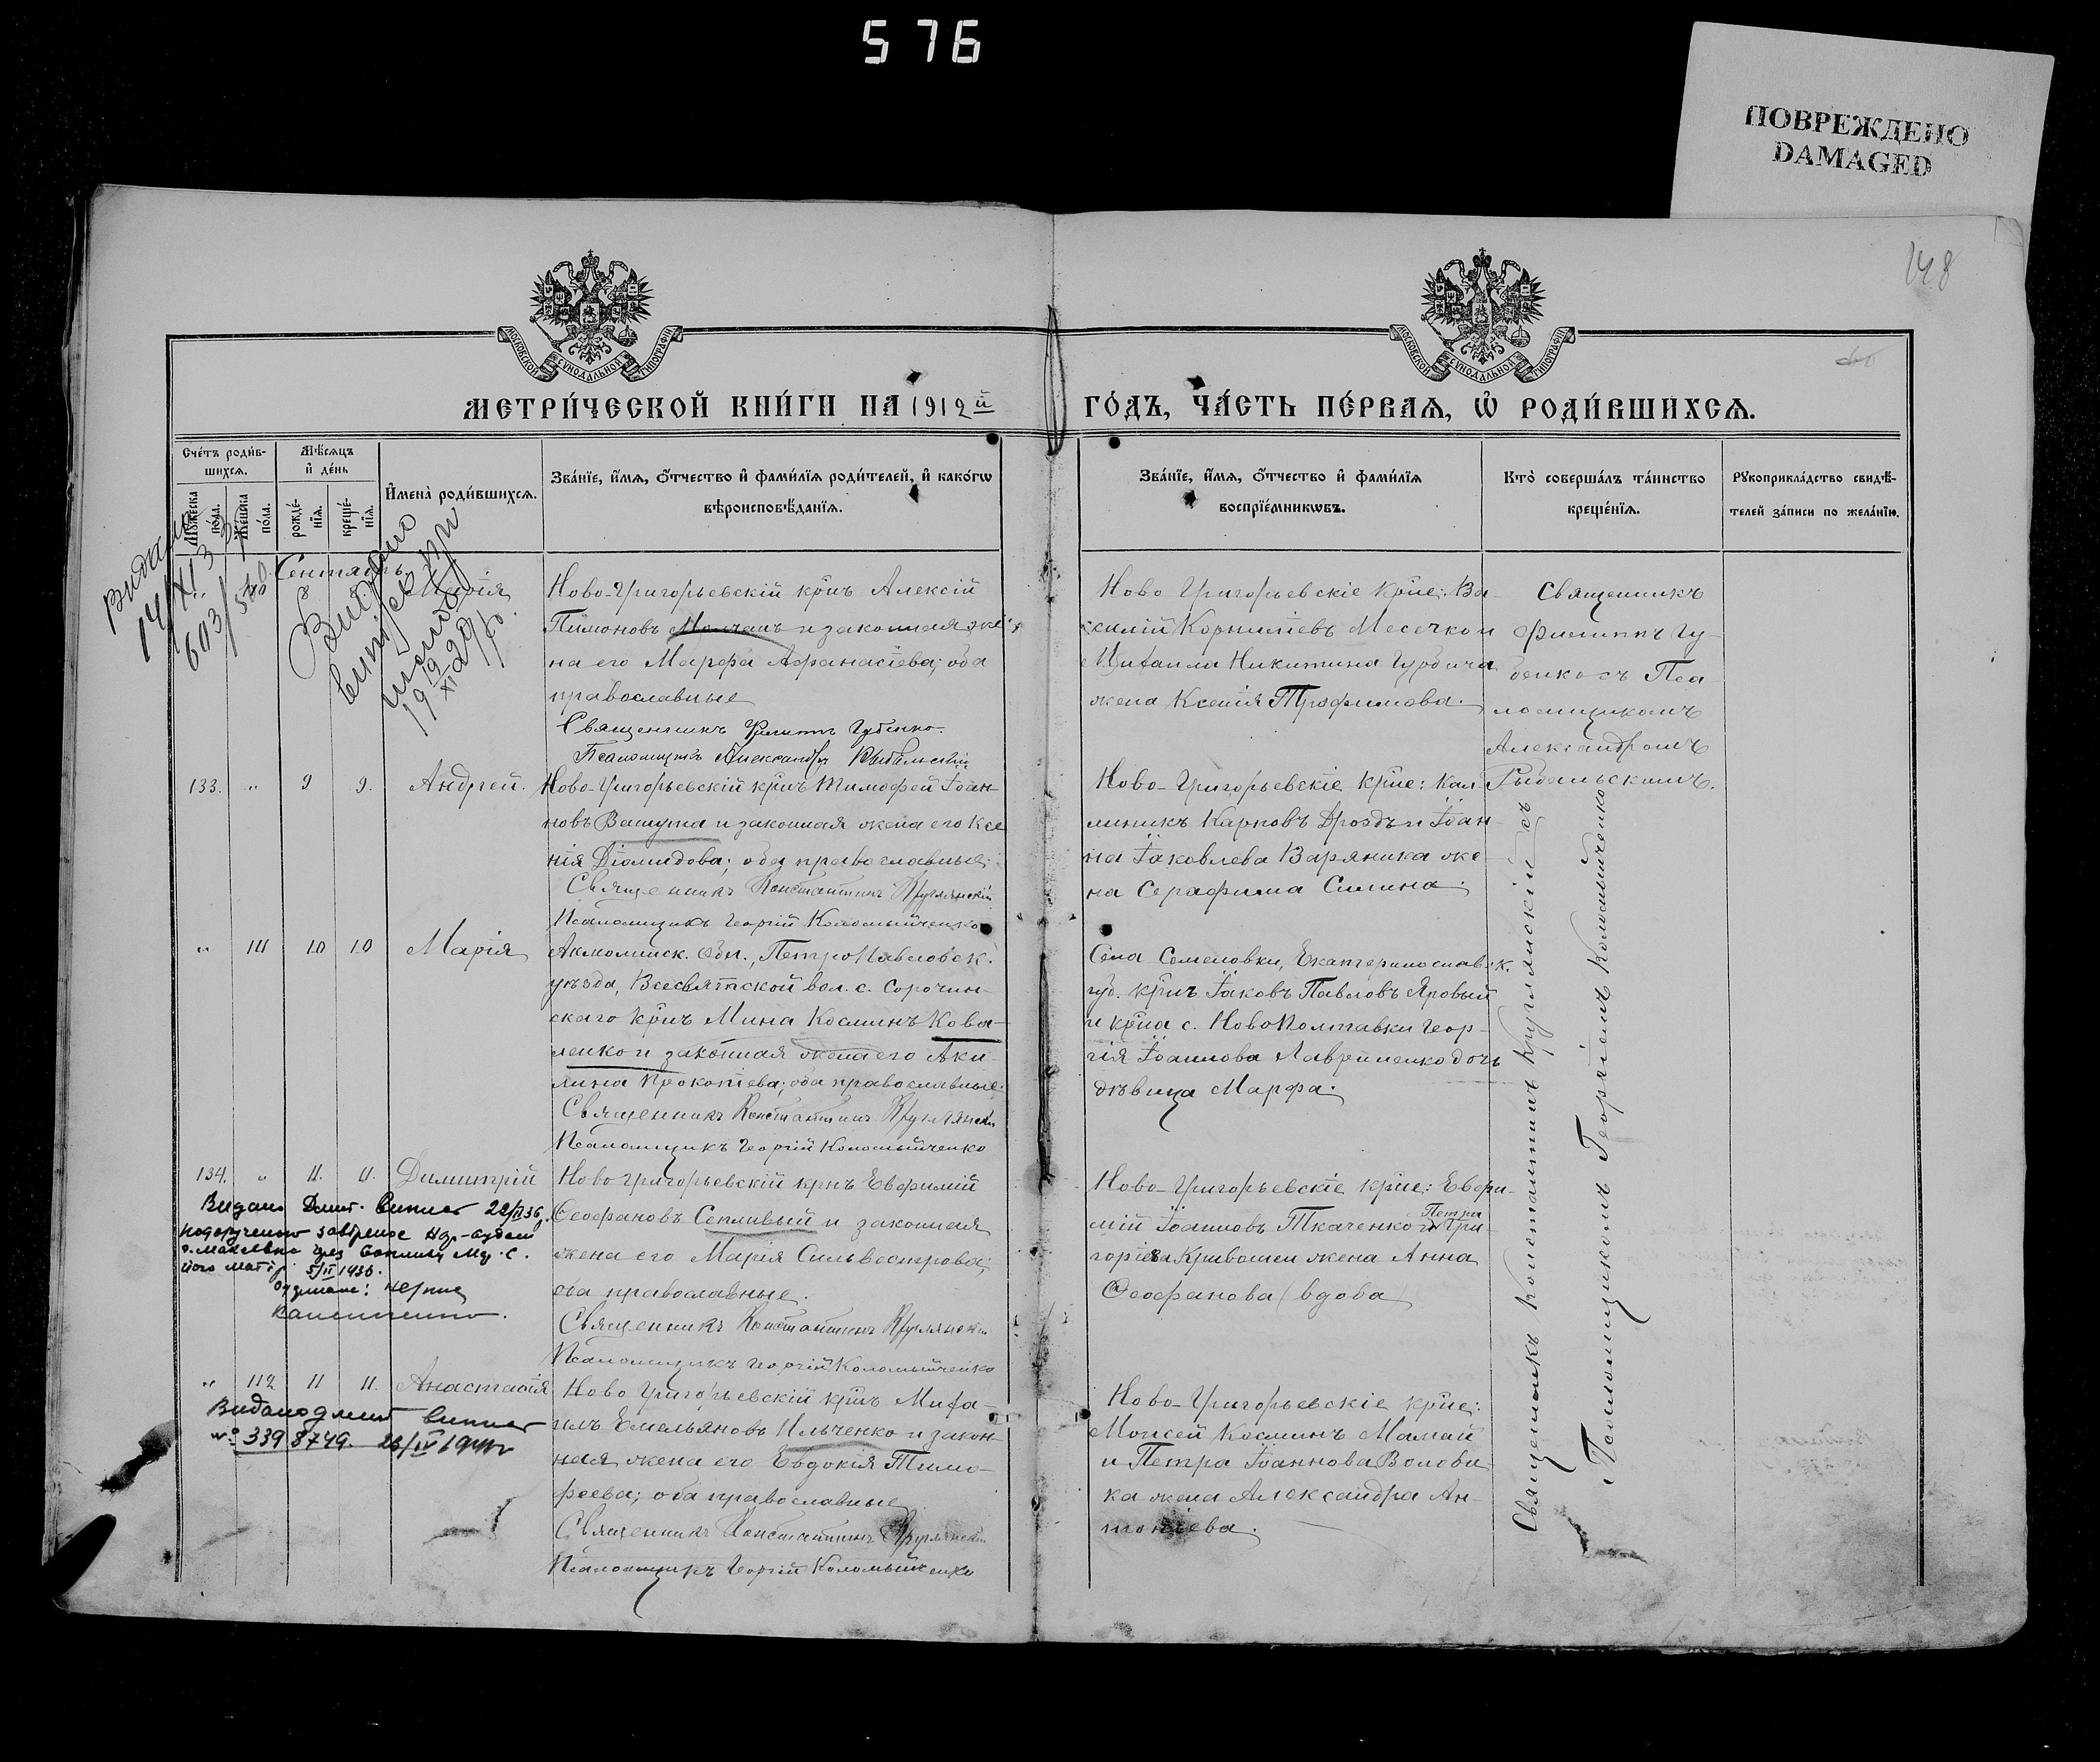 576
ПОВРЕЖДЕНО
DAMAGED
148
МОСКОВСКОЙ СѴНОДАЛЬНОЙ ТИПОГРАФІИ
МОСКОВСКОЙ СѴНОДАЛЬНОЙ ТИПОГРАФІИ
МЕТРИ́ЧЕСКОЙ КНИ́ГИ НА 1912й
ГО́ДЪ, ЧА́СТЬ ПЕ́РВАЯ, Ѡ РОДИ́ВШИХСЯ.
Сче́тъ роди́в-
шихся.
Мѣ́сяцъ
и де́нь
Мужеска по́ла.
Женска по́ла.
рожде́-
нїя.
креще́-
нїя.
Имена̀ роди́вшихся.
Зва́нїе, и́мя, о́тчество и фами́лїя роди́телей, и како́гѡ
вѣроисповѣ́данїя.
Зва́нїе, и́мя, о́тчество и фами́лїя
воспрїе́мникѡвъ.
Кто̀ соверша́лъ та́инство
креще́нїя.
Рукоприкла́дство свидѣ́-
телей за́писи по жела́нїю.
Видано
14/XI 3
603/540
Сентябрь
8 8 Марія
Видано
Ново-Григорьевскій крнъ Алексій
Пимоновъ Молчанъ и законная же-
на его Марфа Афанасіева; оба
православные
Священникъ Филиппъ Губенко.
Псаломщикъ Александръ Рыбальскій
Ново Григорьевскіе крне: Ва-
силій Корниліевъ Месечко и
Михаила Никитина
жена Ксенія Трофимова.
Священникъ
Филиппъ Гу-
бенко съ Пса-
ломщикомъ
Александромъ
Рыбальскимъ.
133. " 9 9. Андрей.
Ново-Григорьевскій крнъ Тимофей Іоан-
новъ Вашута и законная жена его Ксе
нія Діомидова; оба православные.
Священникъ Константинъ Круглянскій
Псаломщикъ Георгій Коломыйченко
Ново-Григорьевскіе крне: Кал-
линикъ Карповъ Дроздъ и Іоан-
на Іаковлева Варяника же-
на Серафима Силина.
" 111 10 10 Марія
Акмолинск. Обл., Петропавловск.
уѣзда, Всесвятской вол. с. Сорочин-
скаго крнъ Мина Косминъ Кова-
ленко и законная жена его Аки-
лина Прокопіева; оба православные.
Священникъ Константинъ Круглянскій
Псаломщикъ Георгій Коломыйченко
Села Семеновки, Екатеринославск.
губ. крнъ Іаковъ Павловъ Яровый
и крна с. Ново Полтавки Геор-
гія Іоаннова Лавриненко дочь
дѣвица Марфа.
134. " 11. 11. Димитрій
Ново Григорьевскій крнъ Евфимій
Феофановъ Сепливый и законная
жена его Марія Сильвестрова;
оба православные.
Священникъ Константинъ Круглянскій
Псаломщикъ Георгій Коломыйченко
Ново-Григорьевскіе крне: Евфи-
мій Іоанновъ Ткаченко и Петра Гри-
горіева Кривошеи жена Анна
Феофанова (вдова)
" 112 11 11. Анастасія
Видано
№ 339 8749.
Ново Григорьевскій крнъ Миха-
илъ Емельяновъ Ильченко и закон-
ная жена его Евдокія Тимо-
феева; оба православные
Священникъ Константинъ Круглянскій
Псаломщикъ Георгій Коломыйченко
Ново-Григорьевскіе крне:
Моисей Косминъ Мамай
и Петра Іоаннова Волови-
ка жена Александра Ан-
тоніева.
Священникъ Константинъ Круглянскій съ
Псаломщикомъ Георгіемъ Коломыйченко